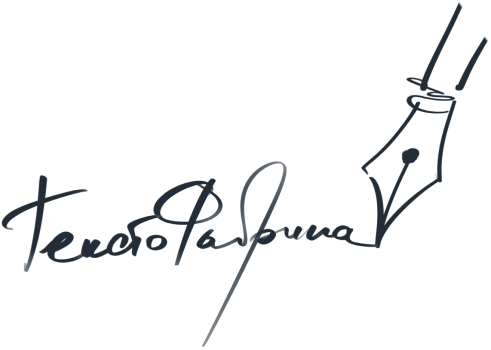 ТекстоФабрика